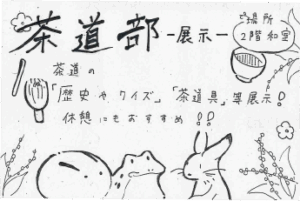 茶道部 -展示-
場所
2階和室
茶道の
「歴史やクイズ」「茶道具」等展示!
休憩にもおすすめ!!